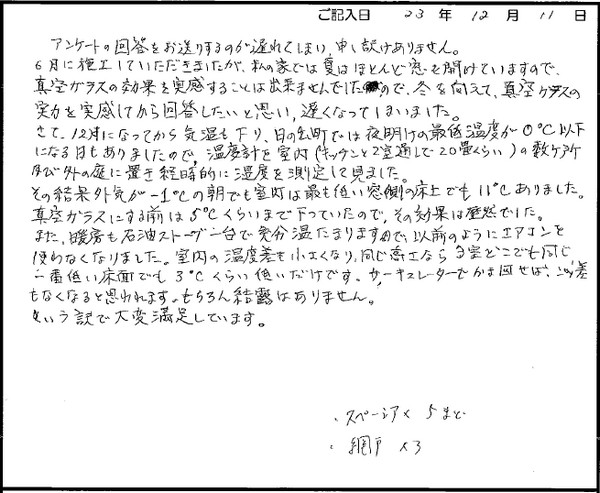 ご記入日 23 年 12 月 11 日
アンケートの回答をお送りするのが遅れてしまい、申し訳ありません。
6月に施工していただきましたが、私の家では夏はほとんど窓を開けていますので、
真空ガラスの効果を実感することは出来ませんでした。ので、冬を向えて、真空ガラスの
実力を実感してから回答したいと思い、遅くなってしまいました。
さて、12月になってから気温も下り、日の出町では夜明けの最低温度が0℃以下
になる日もありましたので、温度計を室内(キッチンと2室通しで20畳くらい)の数ヶ所
及び外の庭に置き経時的に温度を測定して見ました。
その結果外気が-1℃の朝でも室内は最も低い窓側の床上でも11℃ありました。
真空ガラスにする前は5℃くらいまで下っていたので、その効果は歴然でした。
また、暖房も石油ストーブ一台で充分温たまりますので、以前のようにエアコンを
使わなくなりました。室内の温度差も小さくなり、同じ高さなら3室どこでも同じ
一番低い床面でも3℃くらい低いだけです。サーキュレーターでかき回せば、この差
もなくなると思われます。もちろん結露はありません。
という訳で大変満足しています。
・スペーシア × 5まど
・網戸 ×3